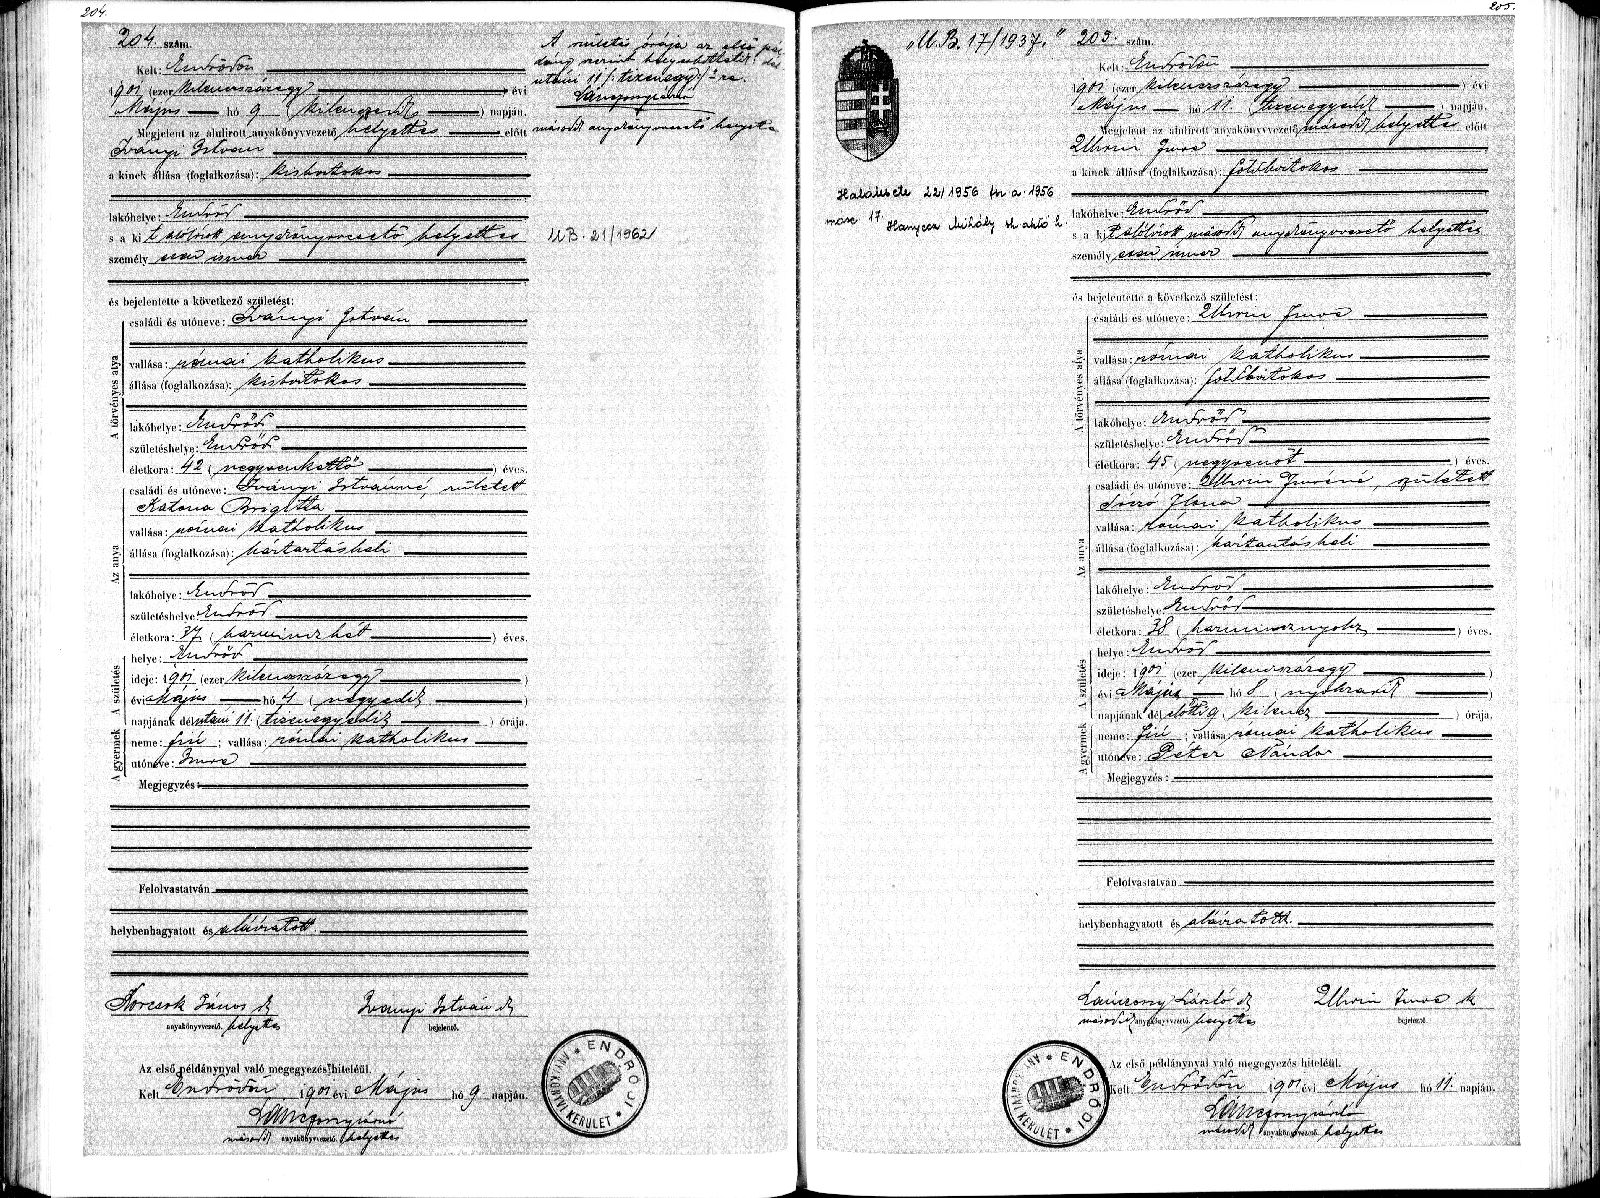 204.
204. szám.
Kelt: Endrődön
1901 (ezer kilenczszázegy) évi
Május hó 9 (kilenczedik) napján.
Megjelent az alulirott anyakönyvvezető helyettes előtt
Iványi István
a kinek állása (foglalkozása): kisbirtokos
lakóhelye: Endrőd
s a kit alólirott anyakönyvvezető helyettes
személyesen ismer
és bejelentette a következő születést:
A törvényes atya
családi és utóneve: Iványi István
vallása: római katholikus
állása (foglalkozása): kisbirtokos
lakóhelye: Endrőd
születéshelye: Endrőd
életkora: 42 (negyvenkettő) éves.
Az anya
családi és utóneve: Iványi Istvánné, született
Katona Brigitta
vallása: római katholikus
állása (foglalkozása): háztartásbeli
lakóhelye: Endrőd
születéshelye: Endrőd
életkora: 37 (harminczhét) éves.
A születés
helye: Endrőd
ideje: 1901 (ezer kilenczszázegy)
évi Május hó 4 (negyedik)
napjának délutáni 11 (tizenegyedik) órája.
A gyermek
neme: fiú; vallása: római katholikus
utóneve: Imre
Megjegyzés:
Felolvastatván
helybenhagyatott és aláíratott.
Iványi István
anyakönyvvezető. helyettes
bejelentő.
Az első példánynyal való megegyezés hiteléül.
Kelt Endrődön, 1901 évi Május hó 9 napján.
második anyakönyvvezető. helyettes
A születés órája az első
utáni 11 /:tizenegy:/
második anyakönyvvezető helyettes
UB. 21/1962
ENDRŐDI ANYAKÖNYVI KERÜLET
205.
„U.B. 17/1937.”
Haláleste 22/1956 fn a. 1956
márc 17.
Hanyecz Mihály
205. szám.
Kelt: Endrődön
1901 (ezer kilenczszázegy) évi
Május hó 11. (tizenegyedik) napján.
Megjelent az alulirott anyakönyvvezető második helyettes előtt
Uhrin Imre
a kinek állása (foglalkozása): földbirtokos
lakóhelye: Endrőd
s a kit alólirott második anyakönyvvezető helyettes
személyesen ismer
és bejelentette a következő születést:
A törvényes atya
családi és utóneve: Uhrin Imre
vallása: római katholikus
állása (foglalkozása): földbirtokos
lakóhelye: Endrőd
születéshelye: Endrőd
életkora: 45 (negyvenöt) éves.
Az anya
családi és utóneve: Uhrin Imréné, született
Ilona
vallása: római katholikus
állása (foglalkozása): háztartásbeli
lakóhelye: Endrőd
születéshelye: Endrőd
életkora: 38 (harmincznyolcz) éves.
A születés
helye: Endrőd
ideje: 1901 (ezer kilenczszázegy)
évi Május hó 8 (nyolczadik)
napjának délelőtti 9 (kilencz) órája.
A gyermek
neme: fiú; vallása: római katholikus
utóneve: Péter Nándor
Megjegyzés:
Felolvastatván
helybenhagyatott és aláíratott.
László
Uhrin Imre
második anyakönyvvezető. helyettes
bejelentő.
Az első példánynyal való megegyezés hiteléül.
Kelt Endrődön 1901 évi Május hó 11. napján.
második anyakönyvvezető. helyettes
ENDRŐDI ANYAKÖNYVI KERÜLET